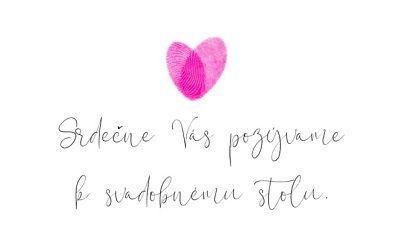 Srdečne Vás pozývame
k svadobnému stolu.